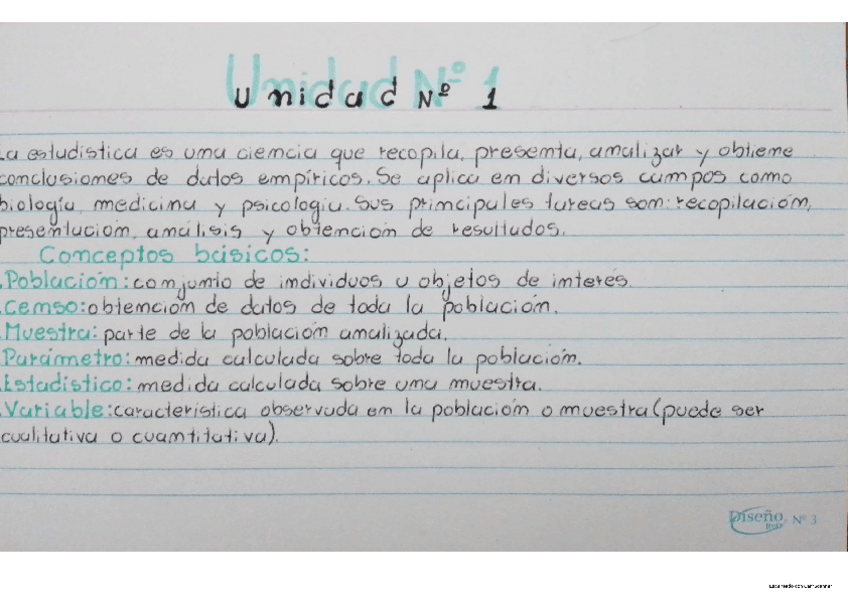 Unidad Nº 1
La estudistica es una ciencia que recopila, presenta, analizar y obtiene
conclusiones de datos empíricos. Se aplica en diversos campos como
biología, medicina y psicología. Sus principales tareas son: recopilación,
presentación, análisis y obtención de resultados.
Conceptos básicos:
.Población: conjunto de individuos u objetos de interés.
.Censo: obtención de datos de toda la población.
.Muestra: parte de la población analizada.
.Parámetro: medida calculada sobre toda la población.
.Estadístico: medida calculada sobre una muestra.
.Variable: característica observada en la población o muestra (puede ser
cualitativa o cuantitativa).
Diseño
Nº 3